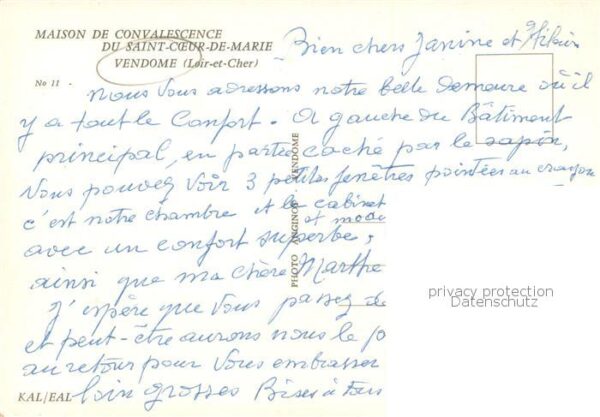 MAISON DE CONVALESCENCE
DU SAINT-CŒUR-DE-MARIE
VENDOME (Loir-et-Cher)
No 11
Bien chers Janine et
nous vous adressons notre belle demeure où il
y a tout le Confort. A gauche du Bâtiment
principal, en partie caché par le sapin,
Vous pouvez voir 3 petites fenêtres pointées au crayon
c'est notre chambre et le cabinet
et
avec un confort superbe,
ainsi que ma chère Marthe
J'espère que Vous passez de
et peut-être aurons nous le
au retour pour Vous embrasser
loin grosses Bises à Tous
PHOTO ANGINOT - VENDOME
KAL/EAL
privacy protection
Datenschutz